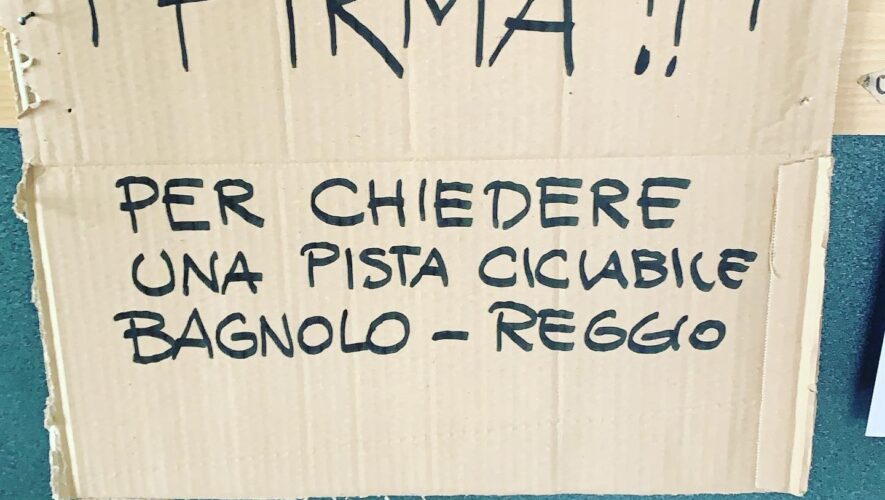 FIRMA!!
PER CHIEDERE
UNA PISTA CICLABILE
BAGNOLO - REGGIO